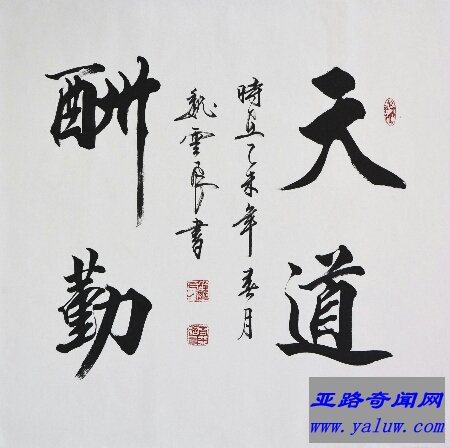 天道
酬勤
時在乙未年春月
魏雲書
亚路奇闻网
www.yaluw.com